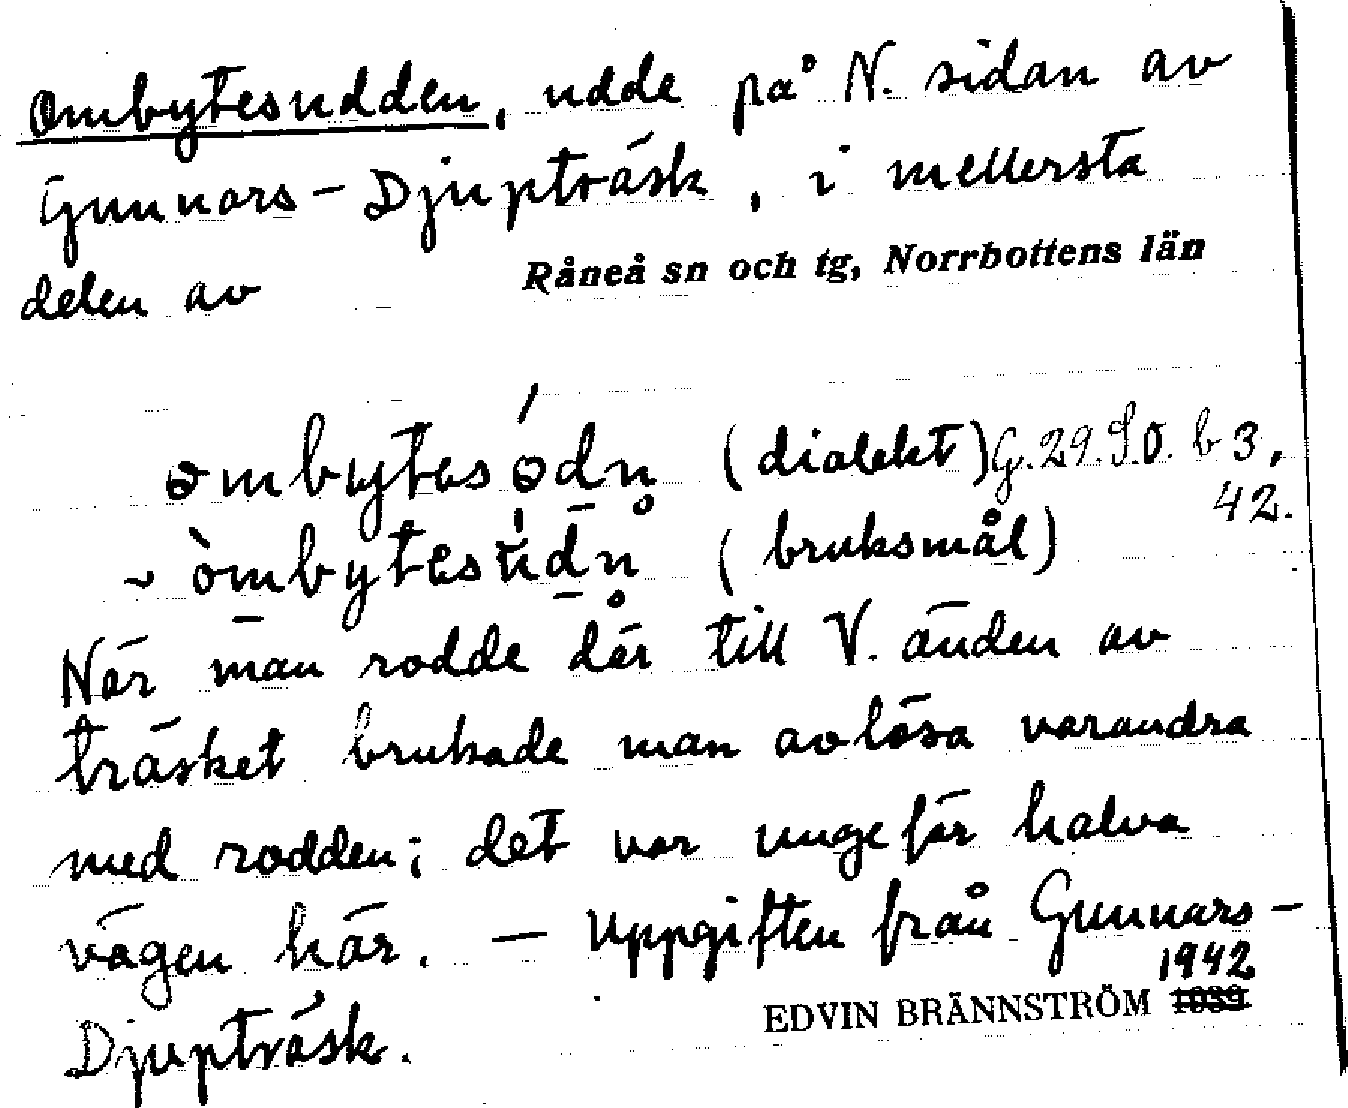 Ombytesudden, udde på N. sidan av
Gunnars-Djupträsk, i mellersta
delen av Råneå sn och tg, Norrbottens län
ombytesódn̥ (dialekt) G. 29. b 3,
42.
~ òmbytesùdn̥ (bruksmål)
När man rodde där till V. änden av
träsket brukade man avlösa varandra
med rodden; det var ungefär halva
vägen här. — Uppgiften från Gunnars-
Djupträsk.
1942
EDVIN BRÄNNSTRÖM 1939